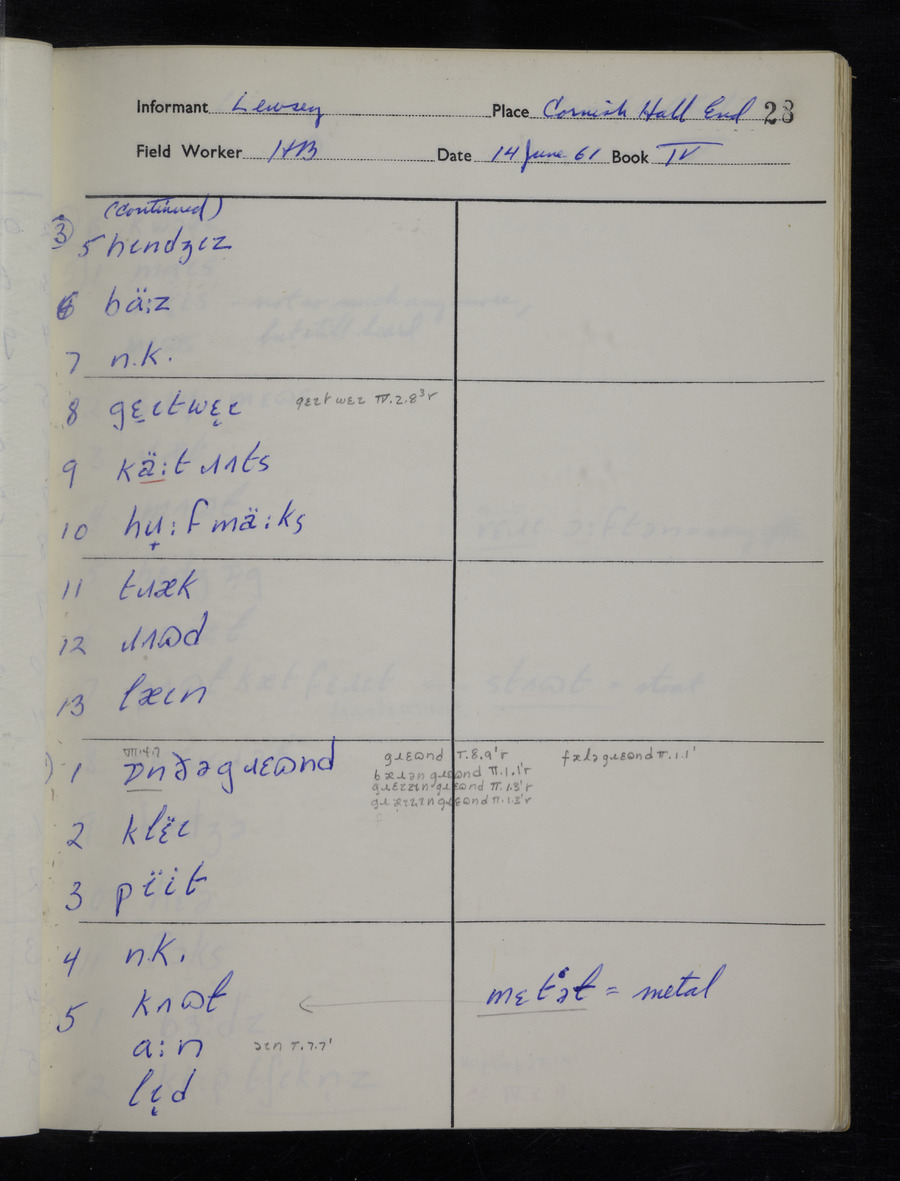 Informant Lewsey Place Cornish Hall End 28
Field Worker HB Date 14 June 61 Book IV
(continued)
③ 5 hɪndʒɪz
6 bä:z
7 n.k.
8 gɛ̣ɪtwɛ̣ɪ gɛɪtwɛɪ IV.2.8³r
9 kä:tɹʌts
10 hʉ̟:fmä:ks
11 tɹæk
12 ɹʌɷd
13 læɪn
1 ɒnðəgɹɛɷnd gɹɛɷnd I.8.9'r fæləgɹɛɷnd II.1.1'
bæɹən gɹɛɷnd II.1.1'r
2 klɛ̈ɪ
3 pïit
4 n.k.
5 kʌɷt mɛtəɫ = metal
a:n
lɛ̣d